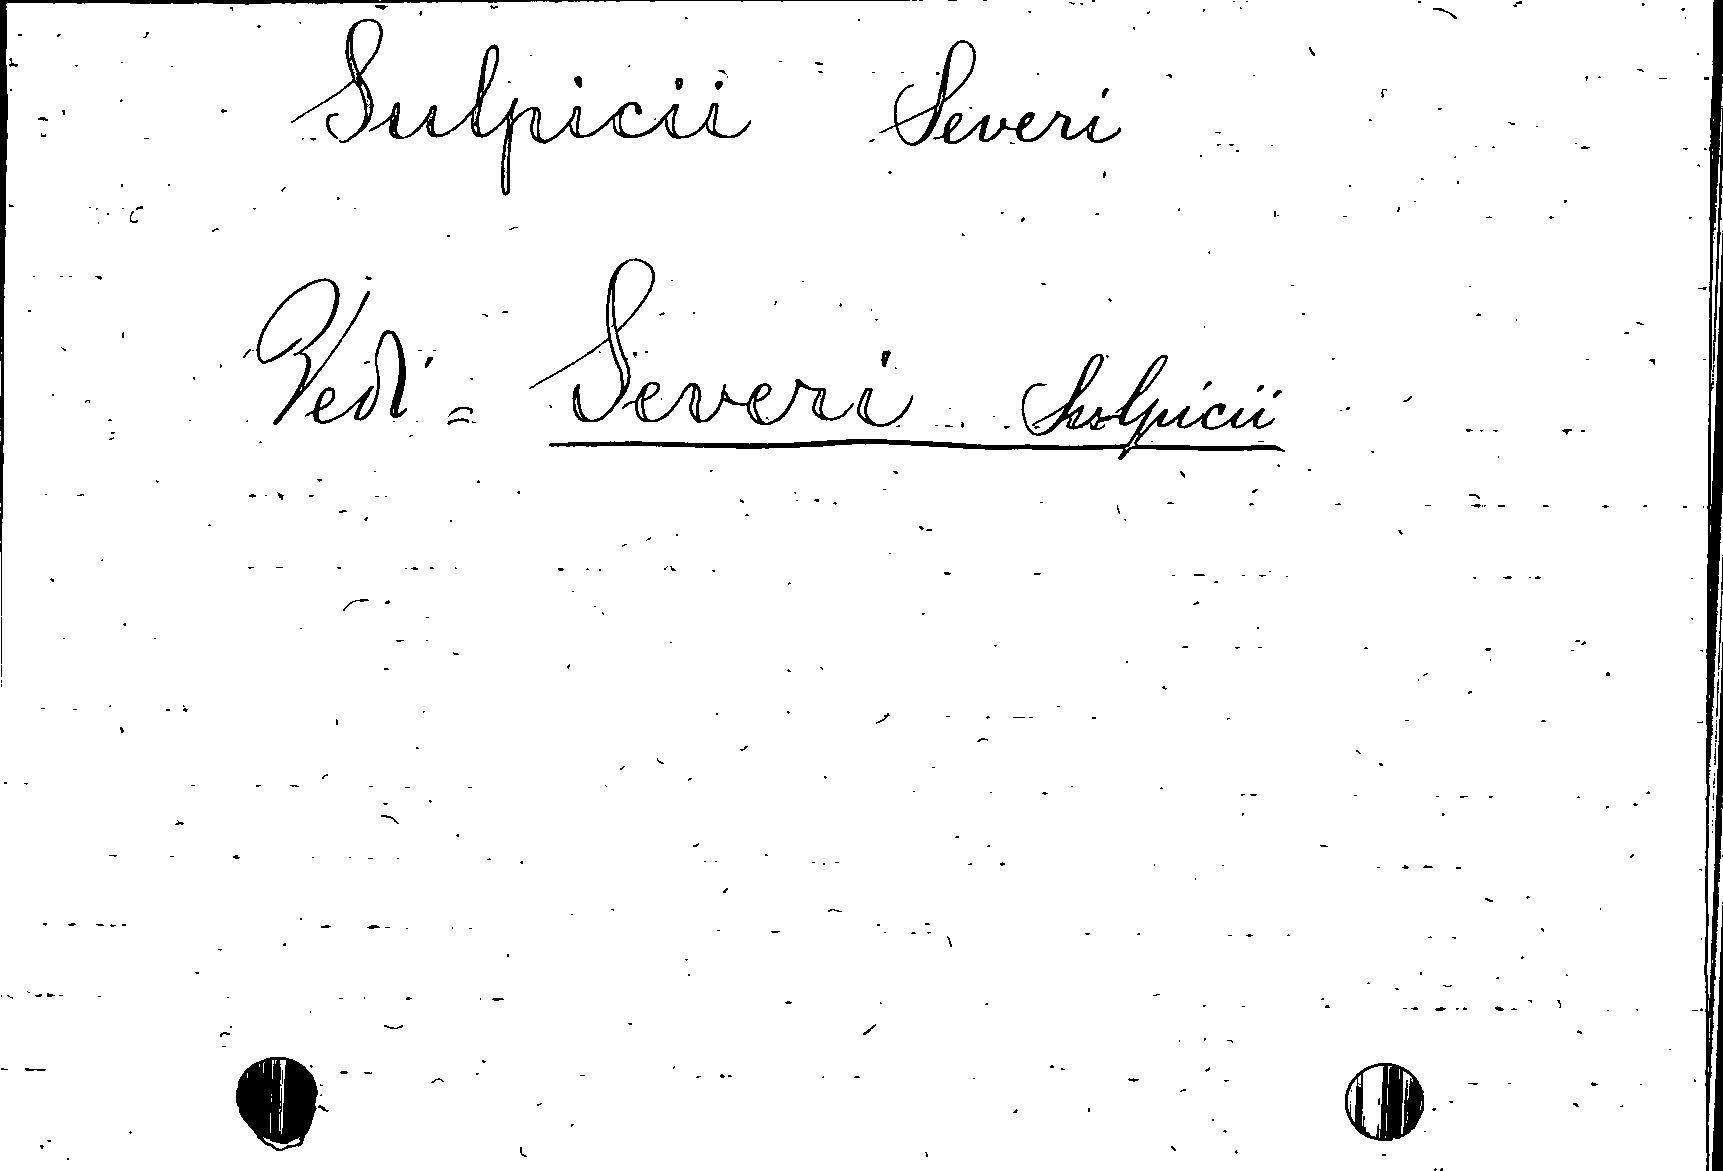 Sulpicii Severi
Vedi = Severi Sulpicii